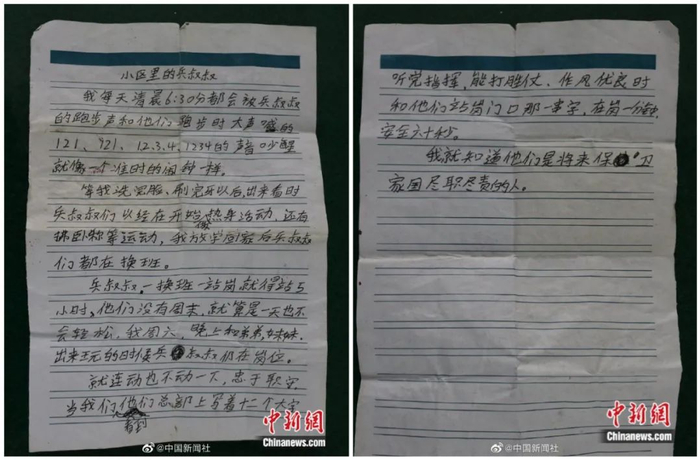 小区里的兵叔叔
我每天清晨6:30分都会被兵叔叔
的跑步声和他们跑步时大声喊的
121、121、12.3.4、1234的声音吵醒
就像一个准时的闹钟一样。
等我洗完脸、刷完牙以后,出来看时
兵叔叔们以经在开始做热身活动,还有
俯卧称等运动,我放学回家后兵叔叔
们都在换班。
兵叔叔一换班一站岗就得站5
小时,他们没有周末,就算是一天也不
会轻松,我周六,晚上和弟弟,妹妹,
出来玩的时候兵叔叔仍在岗位。
就连动也不动一下,忠于职守
当我们看到他们总部上写着十二个大字
中新网
Chinanews.com
@中国新闻社
听党指挥,能打胜仗、作风优良时
和他们站岗门口那一串字,在岗一分钟,
安全六十秒。
我就知道他们是将来保卫
家国尽职尽责的人。
中新网
Chinanews.com
@中国新闻社